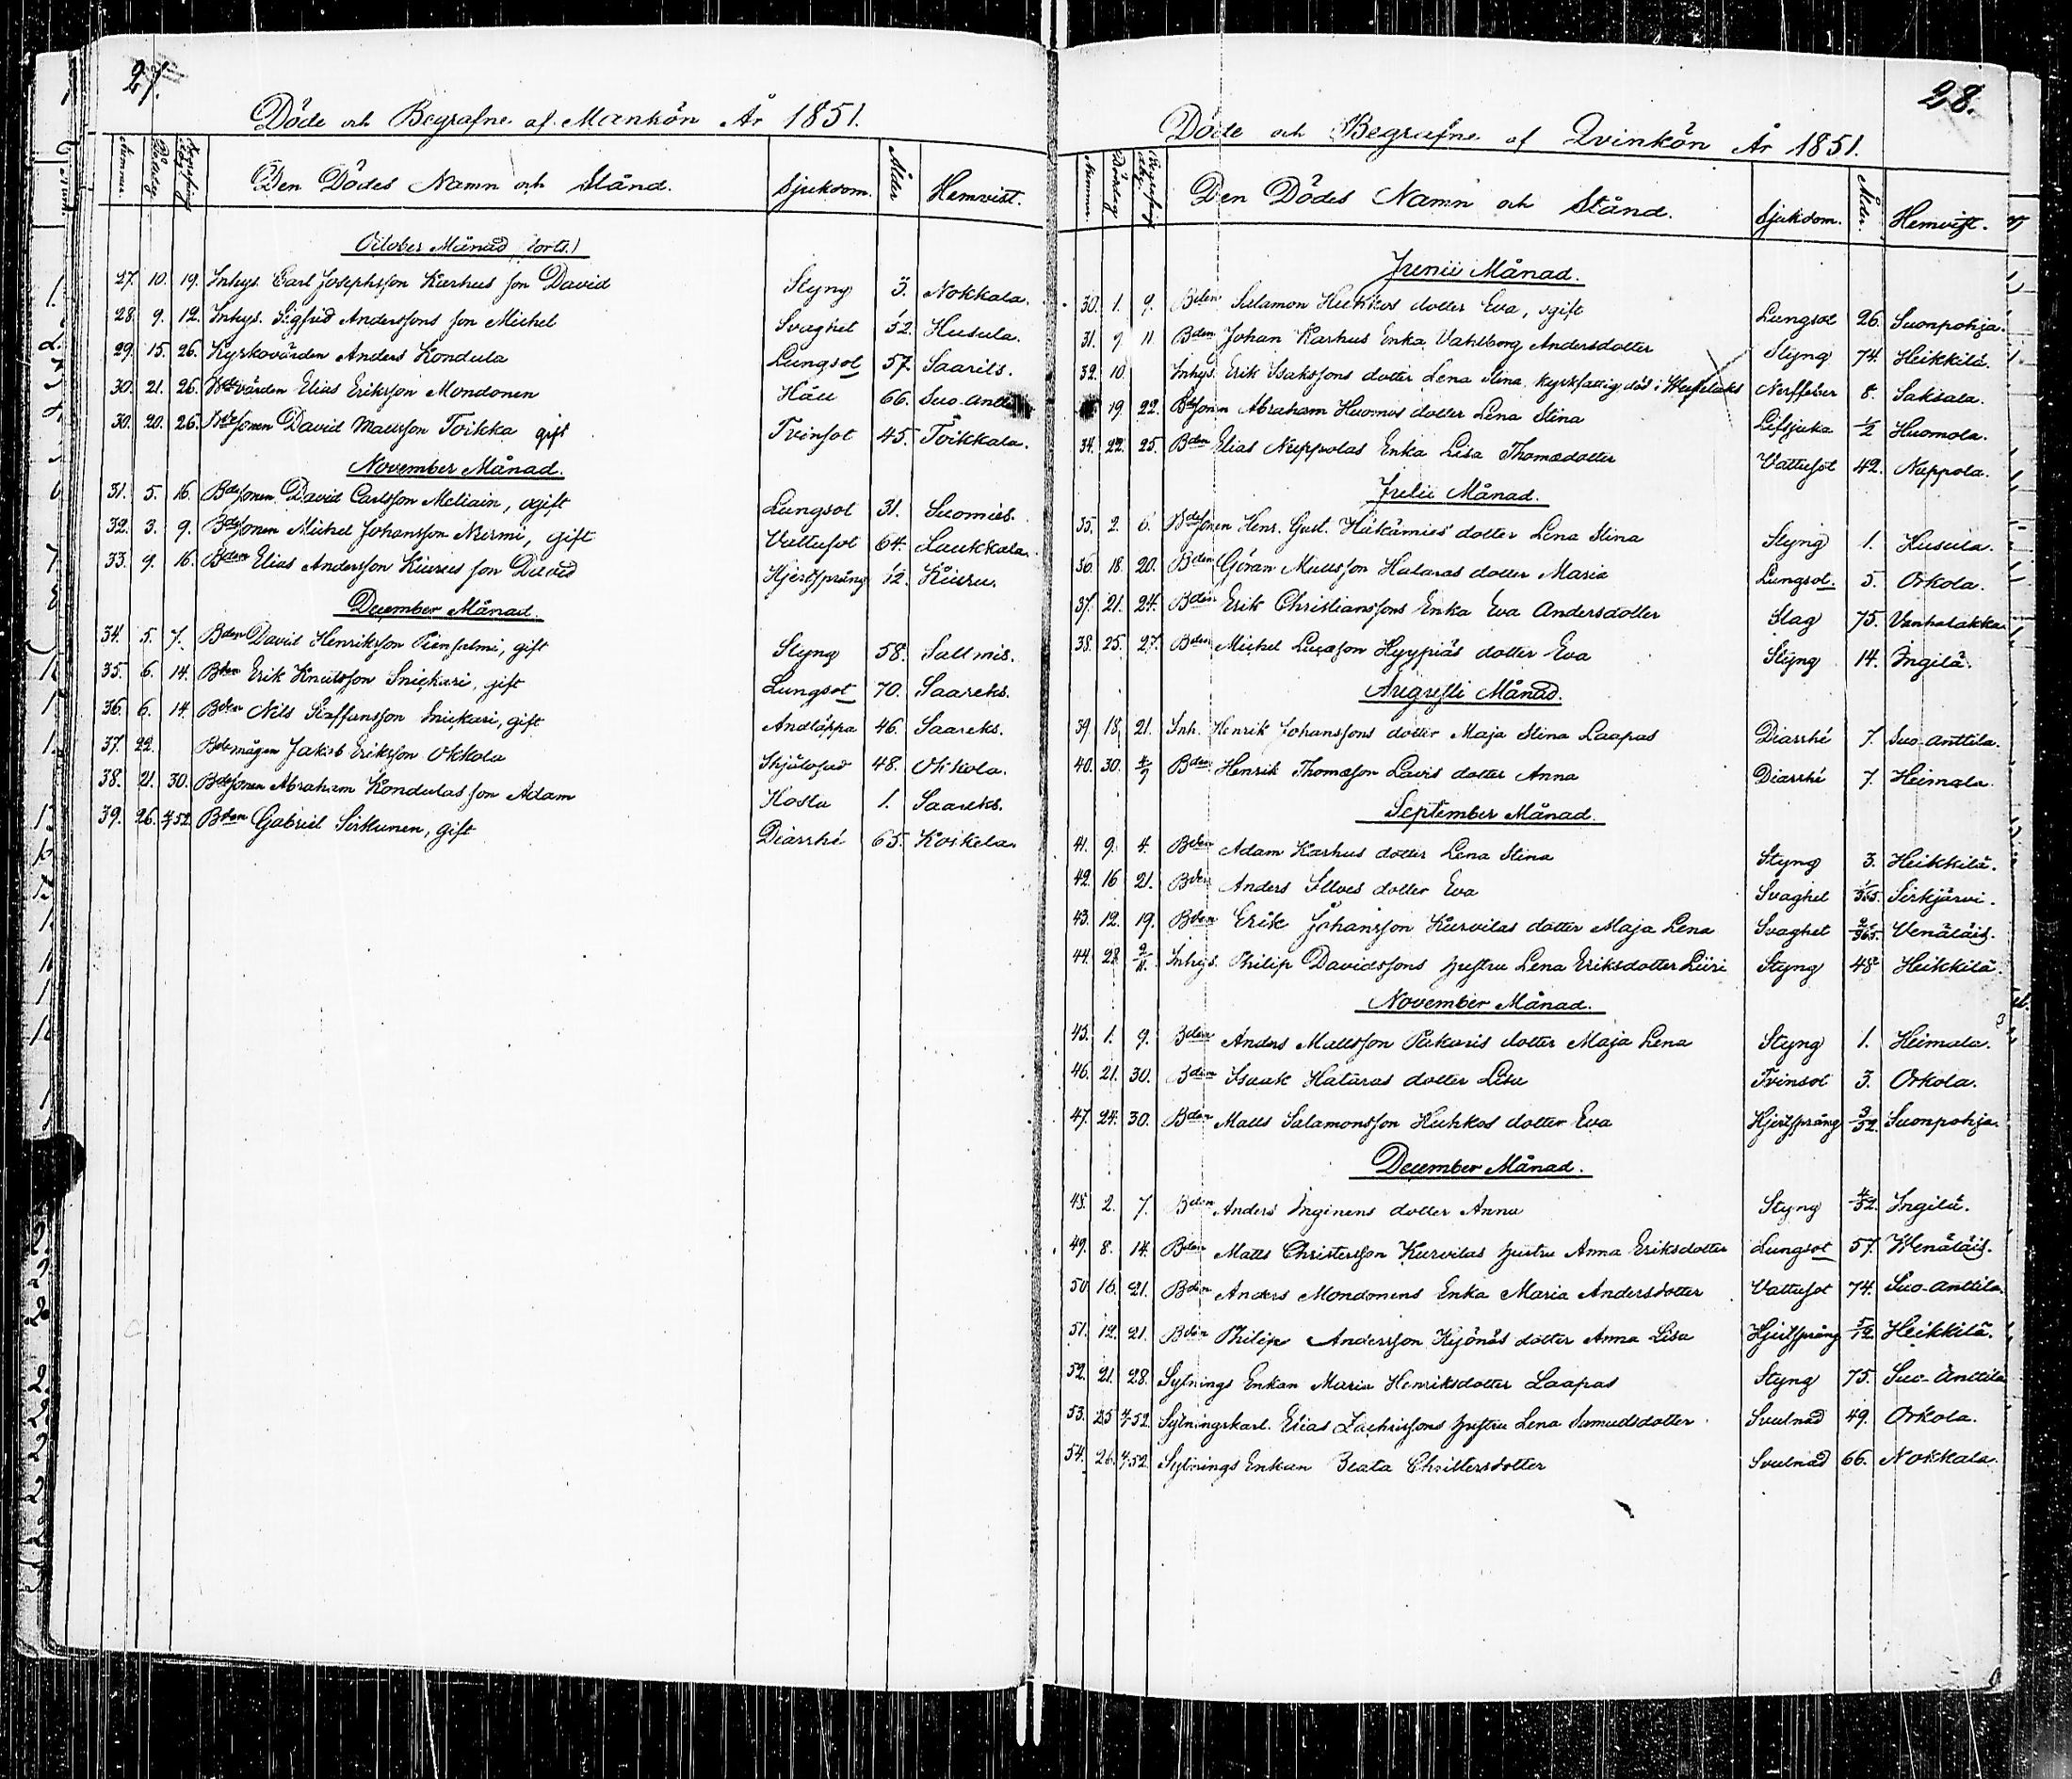 27.
Döde och Begrafne af Mankön År 1851.
Nummer. Dödsdag. Begrafningsdag. Den Dödes Namn och Stånd. Sjukdom. Ålder Hemvist.
October Månad (forts.)
27. 10. 19. Inhys. Carl Josephsson Karhus son David Styng 3. Nokkala.
28. 9. 12. Inhys. Sigfrid Anderssons son Michel Svaghet 1/52. Husula.
29. 15. 26. Kyrkovärden Anders Kondula Lungsot 57. Saarils.
30. 21. 26. värden Elias Eriksson Mondonen Håll 66. Suo-Antti
30. 20. 26. Bdesonen David Mattsson Toikka gift Tvinsot 45. Toikkala.
November Månad.
31. 5. 16. Bdesonen David Carlsson Meliain, ogift Lungsot 31. Suomies.
32. 3. 9. Bdesonen Michel Johansson Nurmi, gift Vattusot 64. Laukkala.
33. 9. 16. Bden Elias Andersson Kiurus son David Hjertsprång 1/2. Kiuru.
December Månad.
34. 5. 7. Bden David Henriksson Piensalmi, gift Styng 58. Salmis.
35. 6. 14. Bden Erik Knutsson Snickari, gift Lungsot 70. Saareks.
36. 6. 14. Bden Nils Staffansson Snickari, gift Andtäppa 46. Saareks.
37. 22. Bdemågen Jakob Eriksson Okkola 48. Okkola.
38. 21. 30. Bdesonen Abraham Kondulas son Adam Hosta 1. Saareks.
39. 26. 4/1 52. Bden Gabriel Sirkunen, gift Diarrhé 65. Koikela.
28.
Döde och Begrafne af Qvinkön År 1851.
Nummer. Dödsdag Begrafningsdag. Den Dödes Namn och Stånd. Sjukdom. Ålder. Hemvist.
Junii Månad.
30. 1. 9. Bden Salamon Huhkos dotter Eva, ogift Lungsot 26. Suonpohja.
31. 9 11 Bden Johan Karhus Enka Vahlborg Andersdotter Styng 74. Heikkilä.
32. 10 Inhys. Erik Isakssons dotter Lena Stina, kyrkfattig död i Weckelaks Nerffeber 8. Saksala.
19. 22. Bdesonen Abraham Huomos dotter Lena Stina Lifsjuka 1/2 Huomola.
34. 22. 25. Bden Elias Nuppolas Enka Lisa Thomædotter Vattusot 42. Nuppola.
Julii Månad.
35. 2. 6. Bdesonen Henr. Gust. Hätkämies dotter Lena Stina Styng 1. Husula.
36. 18. 20. Bden Göran Mattsson Hataras dotter Maria Lungsot. 5. Orkola.
37. 21. 24. Bden Erik Christianssons Enka Eva Andersdotter Slag 75. Vanhalakka.
38. 25. 27. Bden Michel Lucasson Hyypiäs dotter Eva Styng 14. Ingilä.
Augusti Månad.
39. 18. 21. Inh. Henrik Johanssons dotter Maja Stina Laapas Diarrhé 7. Suo-Anttila.
40. 30. 4/9 Bden Henrik Thomæson Lavis dotter Anna Diarrhé 7. Heimala.
September Månad.
41. 9. 4. Bden Adam Karhus dotter Lena Stina Styng 3. Heikkilä.
42. 16 21. Bden Anders Ilves dotter Eva Svaghet 1/365. Sirkjärvi.
43. 12. 19. Bden Erik Johansson Kurvilas dotter Maja Lena Svaghet 2/365. Venäläis.
44. 28 2/11. Inhys. Philip Davidssons hustru Lena Eriksdotter Liiri Styng 48 Heikkilä.
November Månad.
45. 1. 9. Bden Anders Mattsson Pakaris dotter Maja Lena Styng 1. Heimala.
46. 21. 30. Bden Isaak Hataras dotter Lisa Tvinsot 3. Orkola.
47. 24. 30. Bden Matts Salamonsson Huhkos dotter Eva Hjertsprång 3/52. Suonpohja.
December Månad.
48. 2. 7. Bden Anders Inginens dotter Anna Styng 4/52. Ingilä.
49. 8. 14. Bden Matts Christersson Kurvilas hustru Anna Eriksdotter Lungsot 57. Wenäläis.
50. 16. 21. Bden Anders Mondonens Enka Maria Andersdotter Vattusot 74. Suo-Anttila.
51. 12. 21. Bden Philip Andersson Kijönäs dotter Anna Lisa Hjertsprång 5/12. Heikkilä.
52. 21. 28. Sytnings Enkan Maria Henriksdotter Laapas Styng 75. Suo-Anttila
53. 25 4/1 52. Sytningskarl. Elias Zachrissons hustru Lena Samuelsdotter Svulnad 49. Orkola.
54. 26. 4/1 52. Sytnings Enkan Beata Christersdotter Svulnad 66. Nokkala.